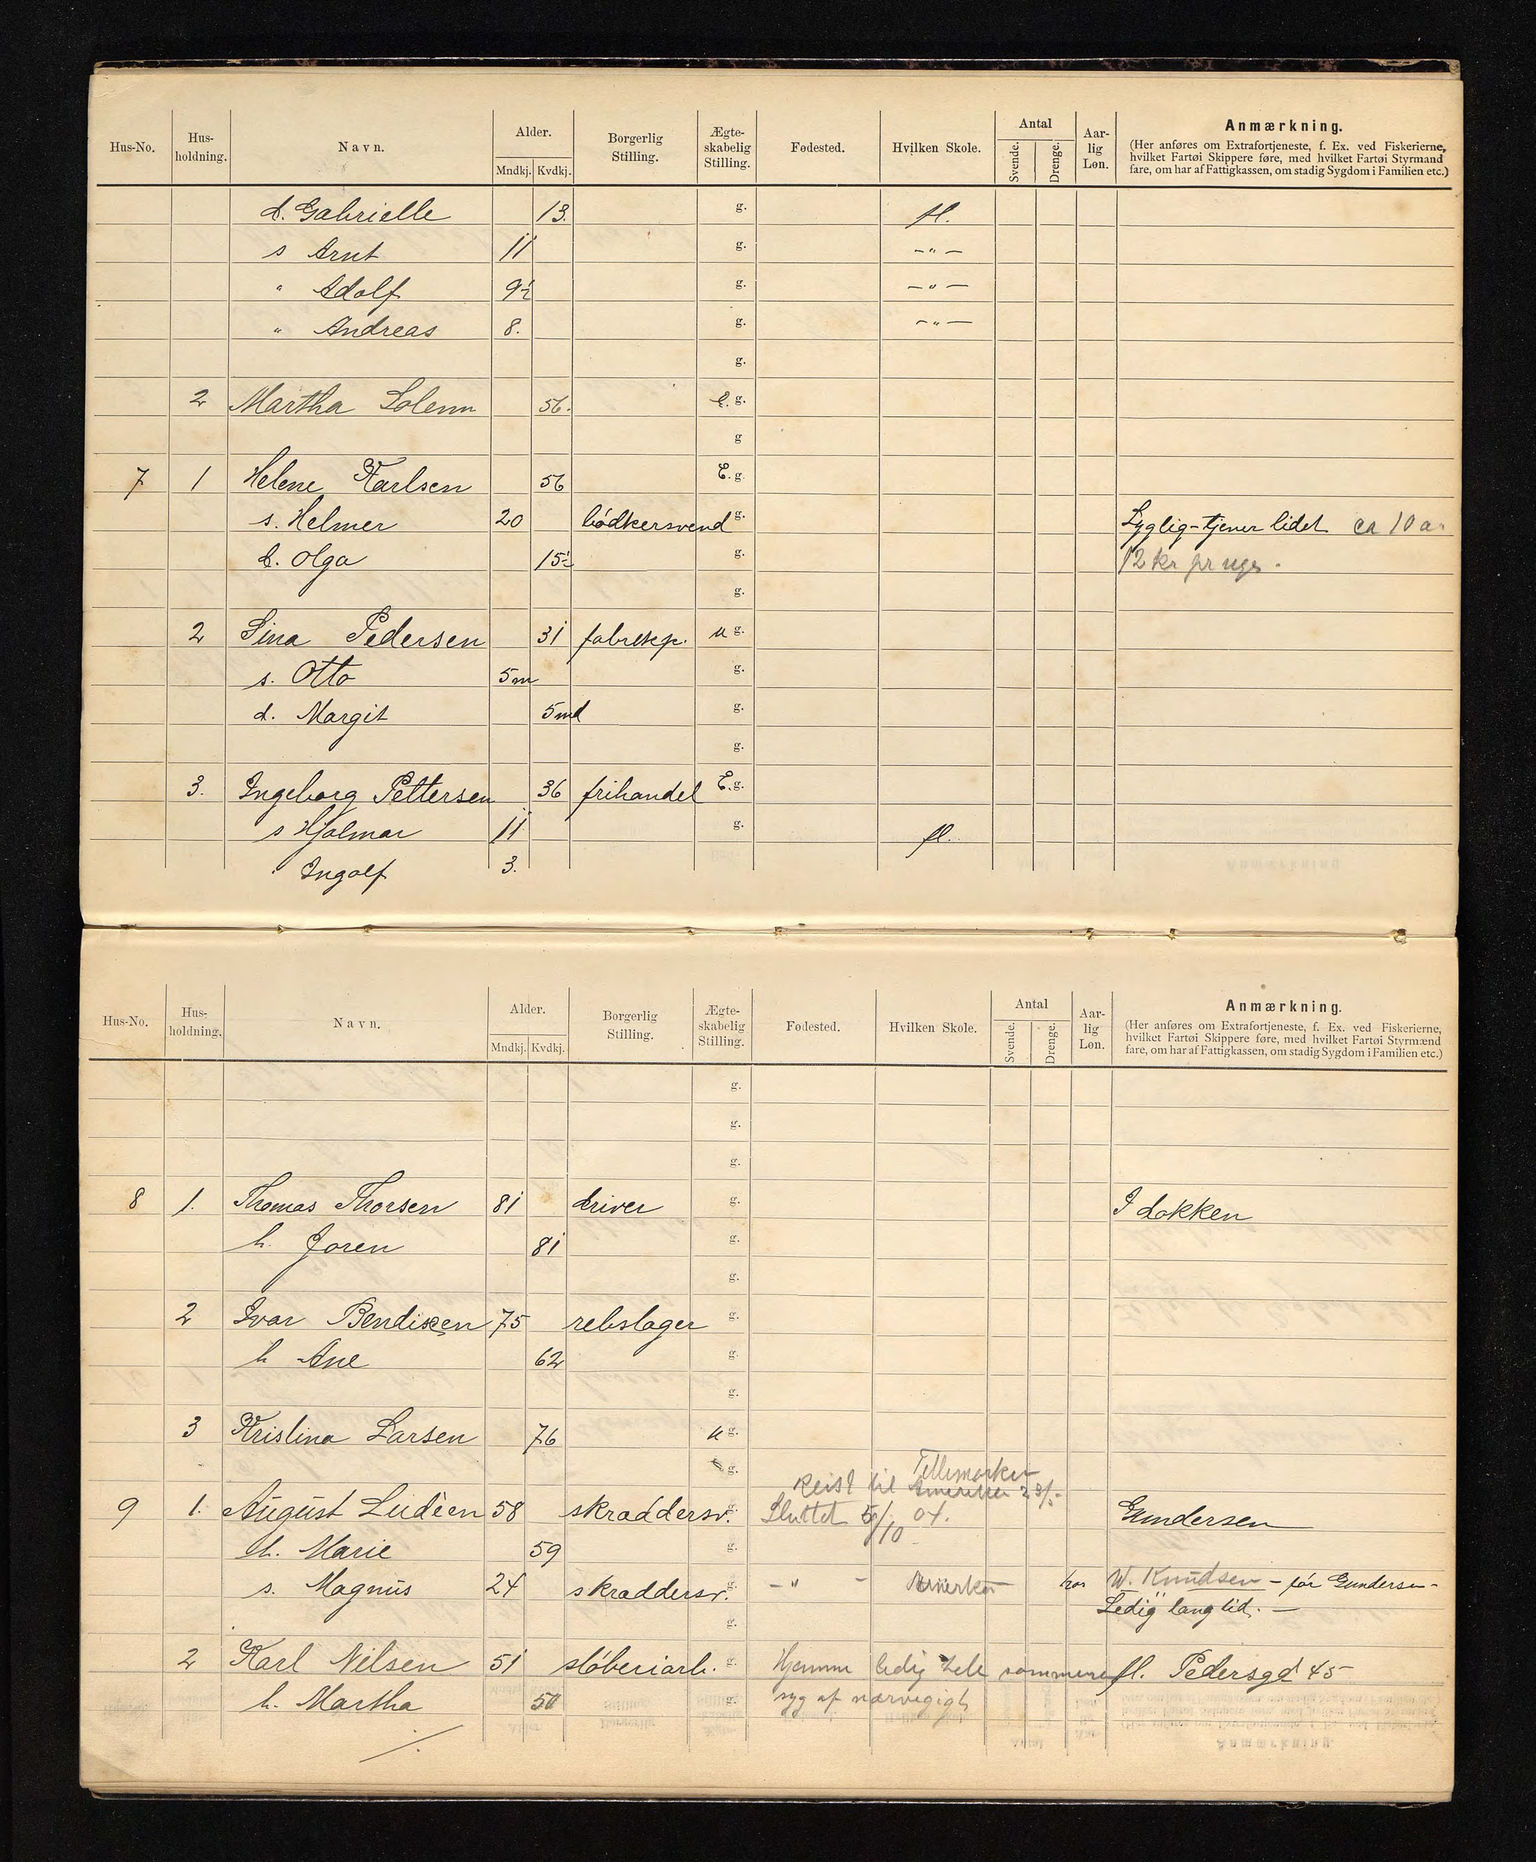 Hus-No. Hus-holdning. Navn. Alder. Mndkj. Kvdkj. Borgerlig Stilling. Ægte-skabelig Stilling. Fødested. Hvilken Skole. Antal Svende. Drenge. Aar-lig Løn. Anmærkning.
(Her anføres om Extrafortjeneste, f. Ex. ved Fiskerierne, hvilket Fartøi Skippere føre, med hvilket Fartøi Styrmænd fare, om har af Fattigkassen, om stadig Sygdom i Familien etc.)
d. Gabrielle 13. g. fl.
s Arnt 11 g. -"-
" Adolf 9½ g. -"-
" Andreas 8. g. -"-
g.
2 Martha Solem 56. E. g.
g
7 1 Helene Karlsen 56 E. g.
s. Helmer 20 bødkersvend g. Syglig-tjener lidet ca 10 a
d. Olga 15½ g. 12 kr pr uge.
g.
2 Sina Pedersen 31 fabrikp. u g.
s. Otto 5m g.
d. Margit 5md g.
g.
3. Ingeborg Pettersen 36 frihandel E. g.
s Hjalmar 11 g. fl.
Ingolf 3.
Hus-No. Hus-holdning. Navn. Alder. Mndkj. Kvdkj. Borgerlig Stilling. Ægte-skabelig Stilling. Fødested. Hvilken Skole. Antal Svende. Drenge. Aar-lig Løn. Anmærkning.
(Her anføres om Extrafortjeneste, f. Ex. ved Fiskerierne, hvilket Fartøi Skippere føre, med hvilket Fartøi Styrmænd fare, om har af Fattigkassen, om stadig Sygdom i Familien etc.)
g.
g.
g.
8 1. Thomas Thorsen 81 driver g. I Løkken
h. Joren 81 g.
g.
2 Ivar Bendixen 75 rebslager g.
h Ane 62 g.
g.
3 Kristina Larsen 76 u g.
g. Tellemarken
reist til Amerika 23/5
9 1. August Ludeen 58 skræddersv. g. Sluttet 5/10 04. Gundersen
h. Marie 59 g.
s. Magnus 24 skræddersv. g. -"- Amerika hos W. Knudsen - før Gundersen -
g. Ledig lang tid. -
2 Karl Nilsen 51 støberiarb. g. Hjemme ledig hele sommeren fl. Pedersgd 45
h. Martha 50 g. syg af nærvegigt